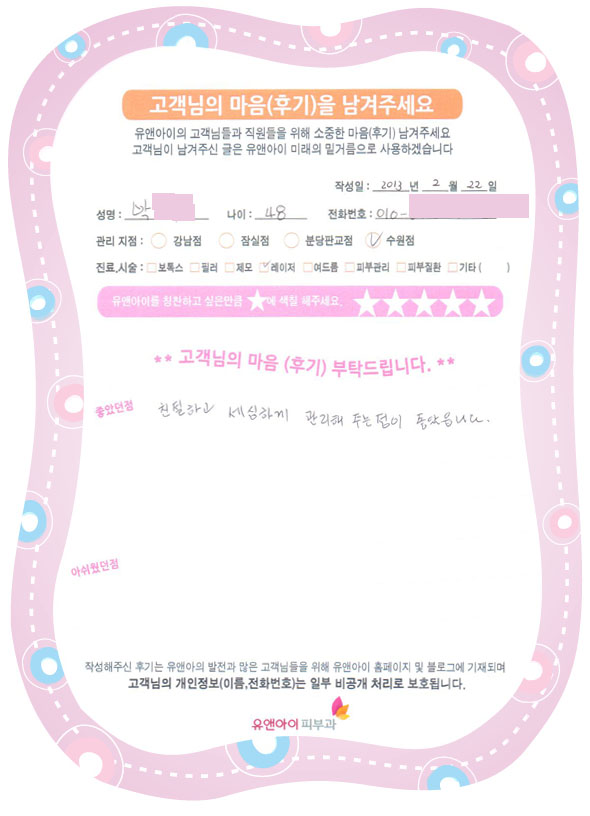 고객님의 마음(후기)을 남겨주세요
유앤아이의 고객님들과 직원들을 위해 소중한 마음(후기) 남겨주세요
고객님이 남겨주신 글은 유앤아이 미래의 밑거름으로 사용하겠습니다
작성일 : 2013 년 2 월 22 일
성명 : 박 나이 : 48 전화번호 : 010-
관리 지점 : 강남점 잠실점 분당판교점 수원점
진료,시술 : 보톡스 필러 제모 레이저 여드름 피부관리 피부질환 기타 ( )
유앤아이를 칭찬하고 싶은만큼 ★에 색칠 해주세요. ★★★★★
** 고객님의 마음 (후기) 부탁드립니다. **
좋았던점 친절하고 세심하게 관리해 주는점이 좋았읍니다.
아쉬웠던점
작성해주신 후기는 유앤아의 발전과 많은 고객님들을 위해 유앤아이 홈페이지 및 블로그에 기재되며
고객님의 개인정보(이름,전화번호)는 일부 비공개 처리로 보호됩니다.
유앤아이 피부과